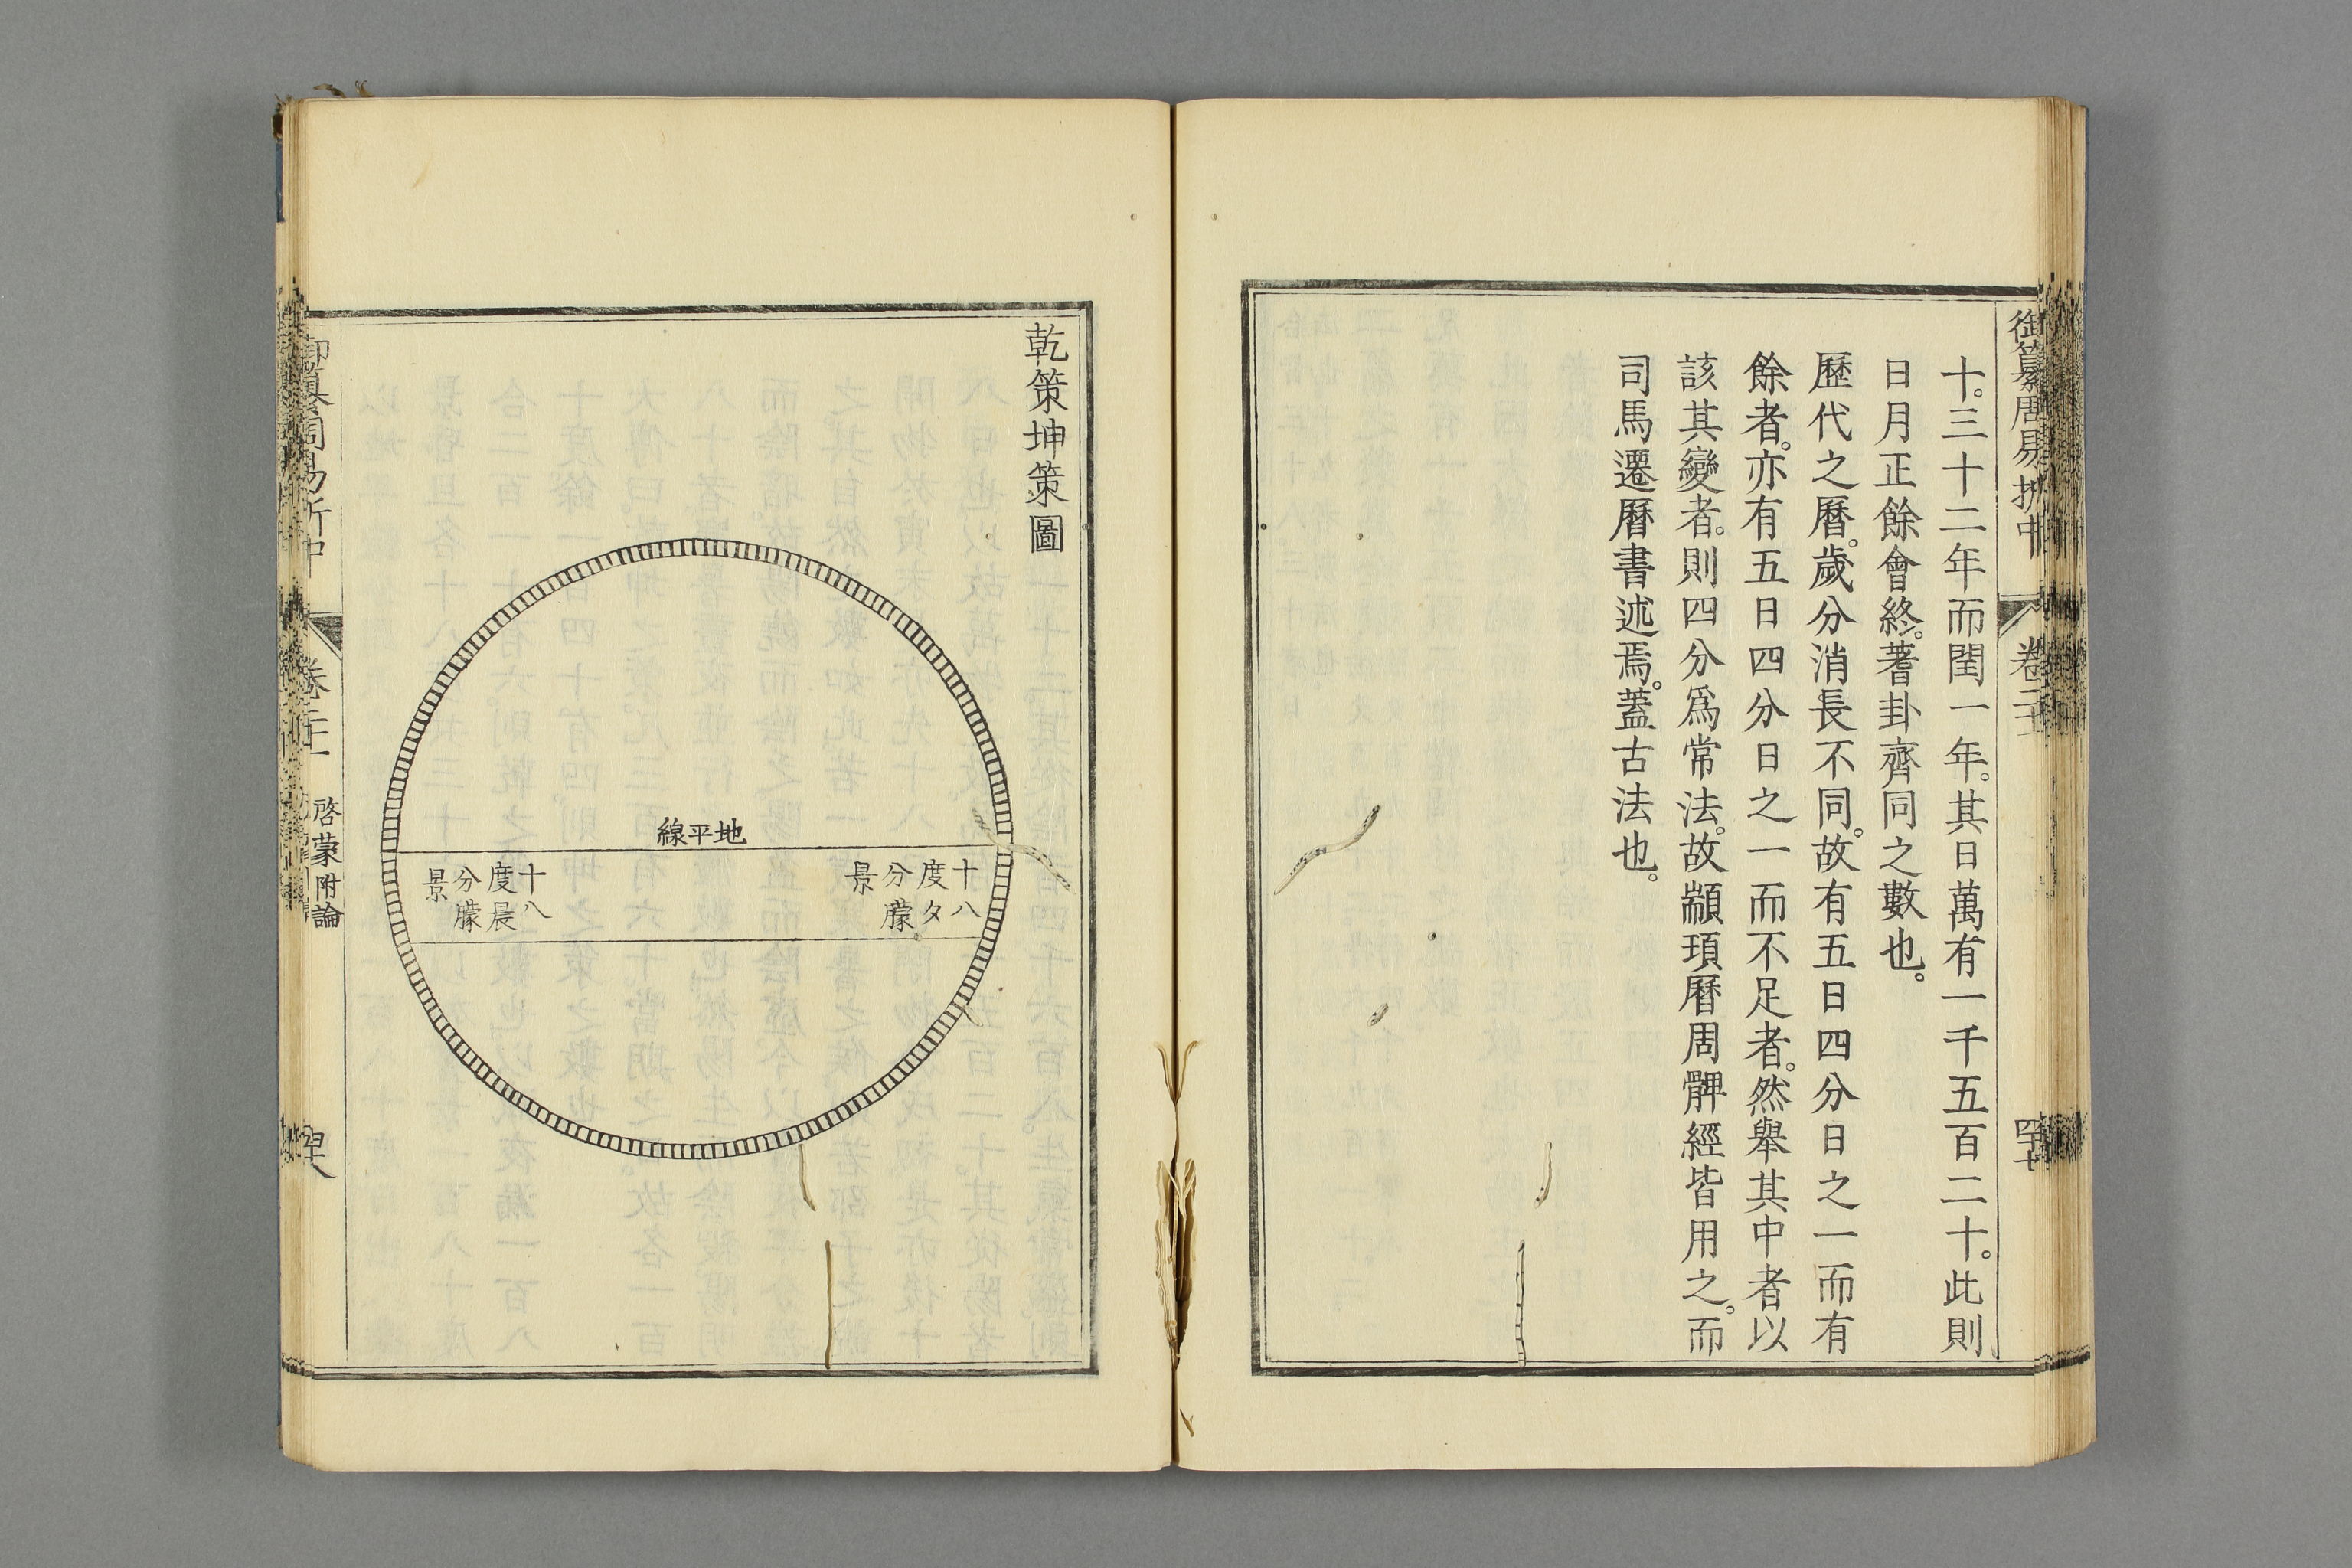 御纂周易折中
卷二十一
四十七
十。三十二年而閏一年。其日萬有一千五百二十。此則
日月正餘會終。蓍卦齊同之數也。
歷代之曆。歲分消長不同。故有五日四分日之一而有
餘者。亦有五日四分日之一而不足者。然舉其中者以
該其變者。則四分爲常法。故顓頊曆周髀經皆用之。而
司馬遷曆書述焉。蓋古法也。
乾策坤策圖
地平線
十八
度夕
分朦
景
十八
度晨
分朦
景
御纂周易折中
卷二十一
啓蒙附論